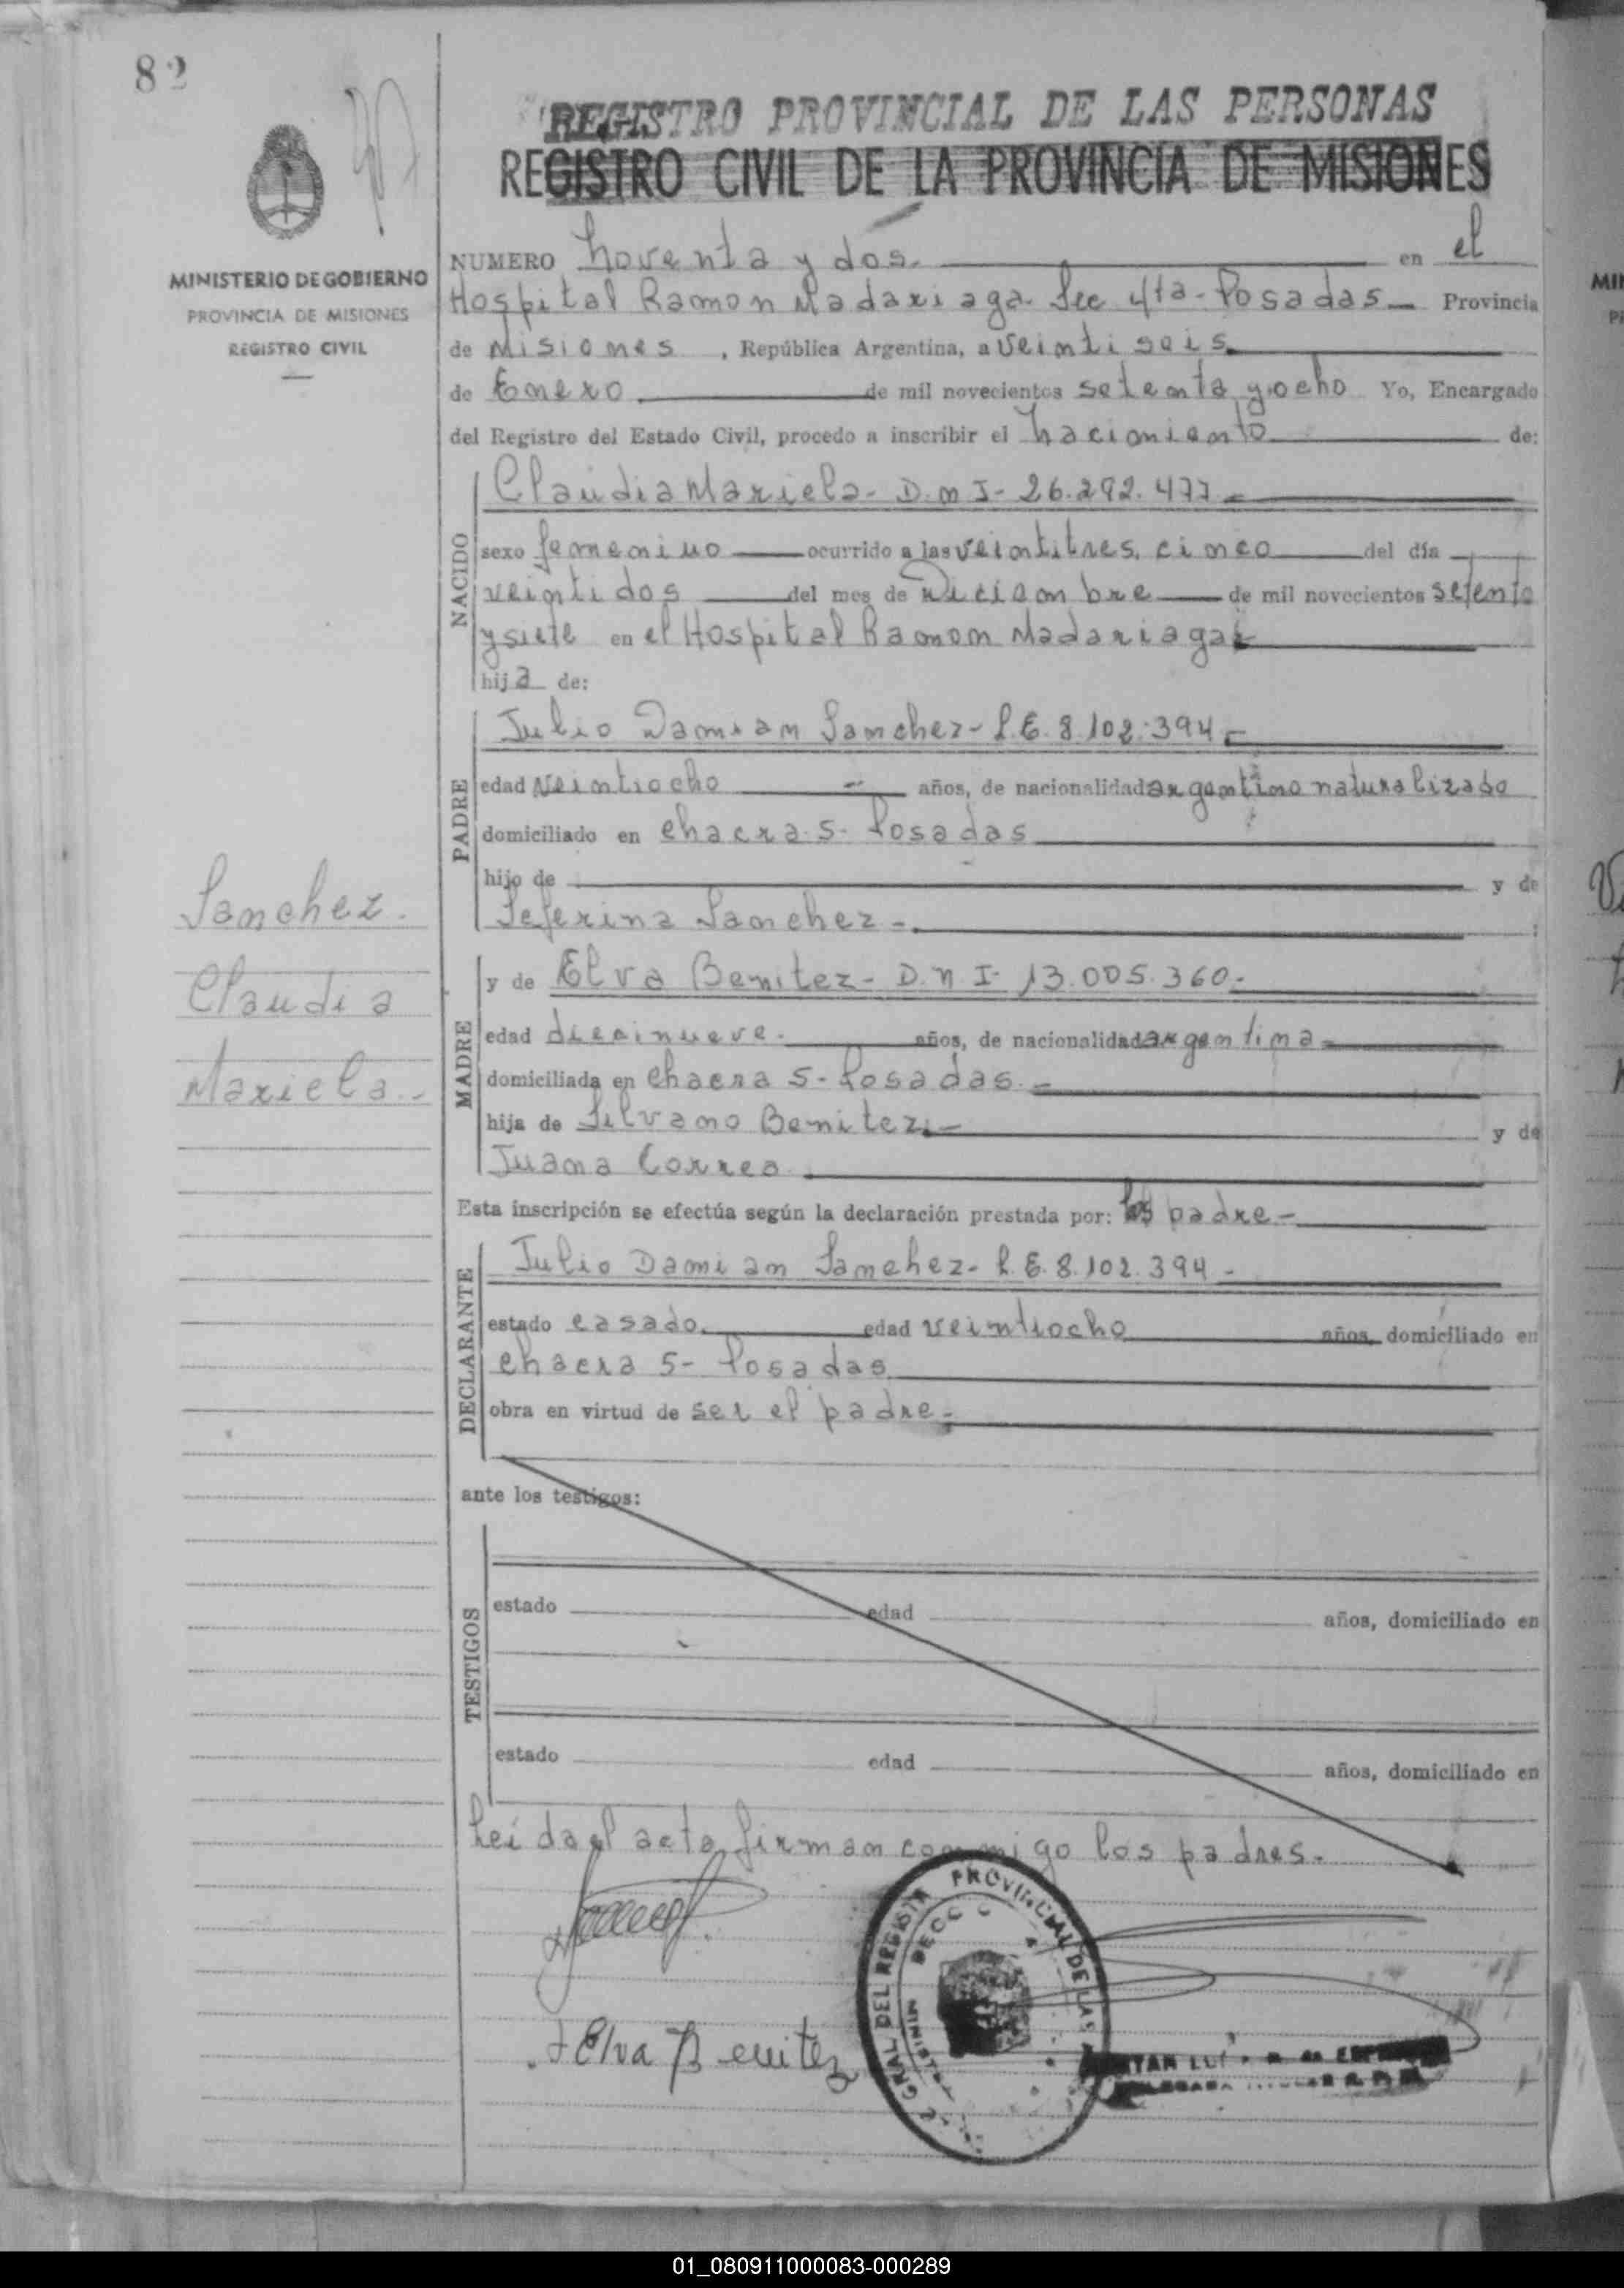 82
REGISTRO PROVINCIAL DE LAS PERSONAS
REGISTRO CIVIL DE LA PROVINCIA DE MISIONES
MINISTERIO DE GOBIERNO
PROVINCIA DE MISIONES
REGISTRO CIVIL
NUMERO Noventa y dos. en el
Hospital Ramon Madariaga. Sec 4ta - Posadas - Provincia
de Misiones, República Argentina, a veintiseis
de Enero de mil novecientos setenta y ocho Yo, Encargado
del Registro del Estado Civil, procedo a inscribir el Nacimiento de:
NACIDO
Claudia Mariela - D.N.I - 26.292.477 -
sexo femenino ocurrido a las veintitres, cinco del día
veintidos del mes de Diciembre de mil novecientos setenta
y siete en el Hospital Ramon Madariaga
hija de:
PADRE
Julio Damian Sanchez - L.E. 8.102.394 -
edad veintiocho años, de nacionalidad argentino naturalizado
domiciliado en chacra 5 - Posadas
hijo de y de
Seferina Sanchez -
Sanchez.
Claudia
Mariela. -
MADRE
y de Elva Benitez - D.N.I - 13.005.360 -
edad diecinueve. años, de nacionalidad argentina -
domiciliada en chacra 5 - Posadas. -
hija de Silvano Benitez. - y de
Juana Correa
Esta inscripción se efectúa según la declaración prestada por: los padre -
DECLARANTE
Julio Damian Sanchez - L.E. 8.102.394 -
estado casado. edad veintiocho años, domiciliado en
chacra 5 - Posadas
obra en virtud de ser el padre -
ante los testigos:
TESTIGOS
estado edad años, domiciliado en
estado edad años, domiciliado en
Leida el acta firman conmigo los padres.
Elva Benitez
GRAL DEL REGISTR PROVINCIAL DE LAS
01_080911000083-000289